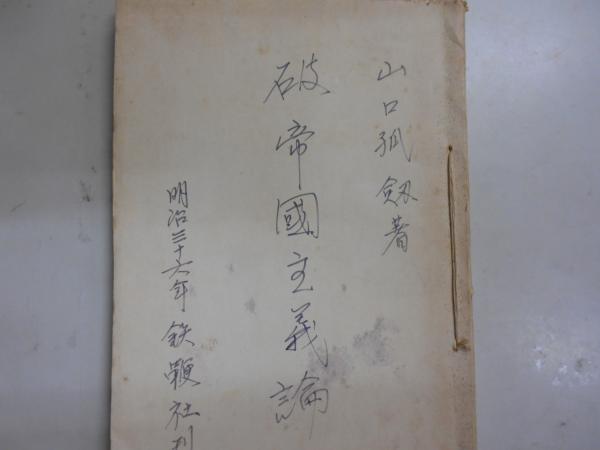 山口孤剱著
破帝國主義論
明治三十六年 鉄鞭社刊